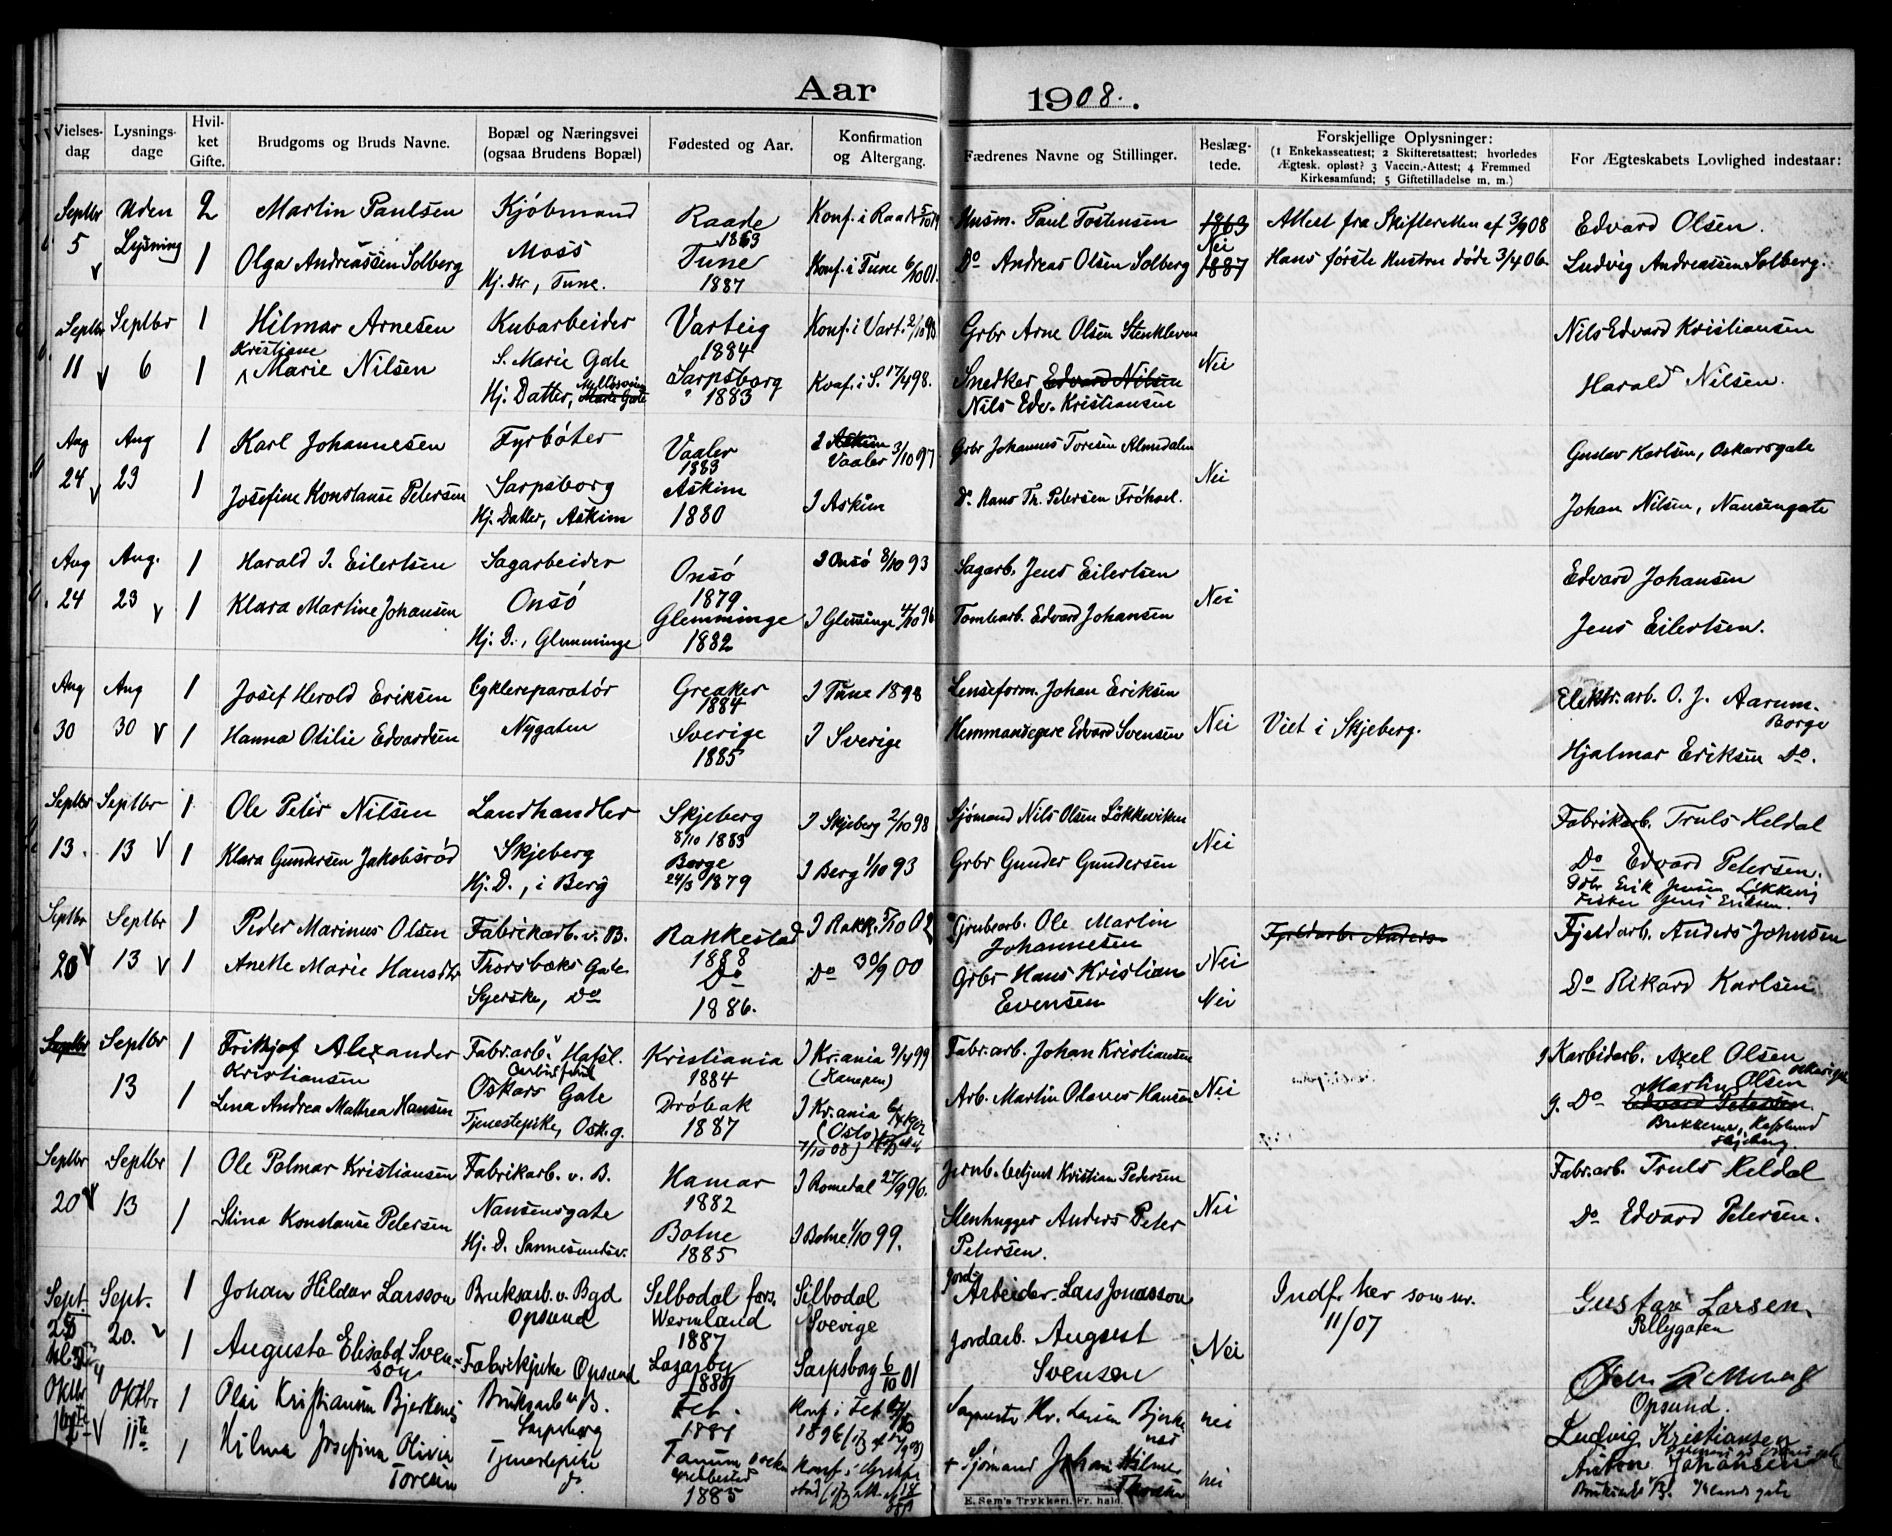 Aar 1908.
Vielsesdag
Lysningsdage
Hvilket Gifte.
Brudgoms og Bruds Navne.
Bopæl og Næringsvei (ogsaa Brudens Bopæl)
Fødested og Aar.
Konfirmation og Altergang.
Fædrenes Navne og Stillinger.
Beslægtede.
Forskjellige Oplysninger:
(1 Enkekasseattest; 2 Skifteretsattest; hvorledes Ægtesk. opløst? 3 Vaccin.-Attest; 4 Fremmed Kirkesamfund; 5 Giftetilladelse m. m.)
For Ægteskabets Lovlighed indestaar:
Septbr Uden 2 Martin Paulsen Kjøbmand Raade 1863 Konf. i Raade Husm. Paul Tostensen 1863 Attest fra Skifteretten af 3/9 08 Edvard Olsen.
5 Lysning 1 Olga Andreassen Solberg Moss Hj. dtr, Tune. Tune 1887 Konf. i Tune 6/10 01. Do Andreas Olsen Solberg Nei 1887 Hans første Hustru døde 3/4 06. Ludvig Andreassen Solberg.
Septbr Septbr 1 Hilmar Arnesen Kubarbeider Varteig 1884 Konf. i Vart. 2/10 98 Grbr Arne Olsen Stenkleven Nils Edvard Kristiansen
11 6 1 Kristiane Marie Nilsen S. Marie Gate Hj. Datter, Sarpsborg 1883 Konf. i S. 17/4 98. Snedker Edvard Nilsen Nils Edv. Kristiansen Nei Harald Nilsen.
Aug Aug 1 Karl Johannesen Fyrbøter Vaaler 1883 I Askim Vaaler 3/10 97 Grbr Johannes Toresen Gustav Karlsen, Oskarsgate
24 23 1 Josefine Konstanse Petersen Sarpsborg Hj. Datter, Askim Askim 1880 I Askim Do Hans Th. Petersen Frøhoel. Nei Johan Nilsen, Nansengate
Aug Aug. 1 Harald I. Eilertsen Sagarbeider Onsö 1879 I Onsö 8/10 93 Sagarb. Jens Eilertsen Edvard Johansen
24 23 1 Klara Martine Johansen Onsö Hj. D., Glemminge Glemminge 1882 I Glemminge 4/10 96 Tomtearb. Edvard Johansen Nei Jens Eilertsen.
Aug Aug 1 Josef Herold Eriksen Cyklereparatør Greaker 1884 I Tune 1898 Lenseform. Johan Eriksen Elektr. arb. O. J. Aarum. Borge
30 30 1 Hanna Otilie Edvardsen Nygaten Sverige 1885 I Sverige Hemmansegere Edvard Svensen Nei Viet i Skjeberg. Hjalmar Eriksen Do.
Septbr Septbr 1 Ole Peter Nilsen Landhandler Skjeberg 8/10 1883 I Skjeberg 2/10 98 Sjømand Nils Olsen Løkkeviken Fabrikarb. Truls Heldal
13. 13 1 Klara Gundersen Jakobsrød Skjeberg Hj. D., i Berg Borge 24/3 1879 I Berg 1/10 93 Grbr Gunder Gundersen Nei Do Edvard Petersen.
Gdbr Erik Jensen Løkkevig
Fisker Jens Eriksen.
Septbr Septbr 1 Peder Marinus Olsen Fabrikarb. v. B. Rakkestad 1888 I Rakk. 5/10 02 Grubearb. Ole Martin Johannesen Nei Fjeldarb. Anders Fjeldarb. Anders Johnsen
20 13 1 Anette Marie Hansdtr Thorsbæks Gate Syerske, Do Do 1886. Do 30/9 00 Grbr Hans Kristian Evensen Nei Do Rikard Karlsen
Septbr Septbr 1 Frithjof Alexander Kristiansen Fabr. arb. Hafsl. Oskars Gate Kristiania 1884 I Kr.ania 9/4 99 (Kampen) Fabr. arb. Johan Kristiansen Karbidarb. Axel Olsen
13 1 Lina Andrea Mathea Hansen Tjenestepike, Osk. g. Drøbak 1887 I Kr.ania (Oslo) Arb. Martin Olaves Hansen Nei Do Edvard Petersen. Martin Olsen
Septbr Septbr 1 Ole Palmar Kristiansen Fabrikarb. v. B. Hamar 1882 I Romedal 27/9 96. Jernb. betjent Kristian Pedersen Fabr. arb. Truls Heldal
20 13 1 Stina Konstanse Petersen Nansensgate Hj. D. Sannesundsv. Botne 1885 I Botne 1/10 99. Stenhugger Anders Peter Petersen. Nei Do Edvard Petersen.
Sept. Sept. 1 Johan Hildor Larsson Bruksarb. v. Bgd Opsund Silbodal fors. Wermland 1887 Silbodal Sverige Jord-Arbeider Lars Jonasson Indf. her som nr. 11/07 Gustav Larsen, Pellygaten
20. 1 Augusta Elisabet Svenson Fabrikpike Opsund Sarpsborg 6/10 01 Jordarb. August Svensen Nei Opsund.
Oktbr Oktbr 1 Olai Kristiansen Bruksarb v B. Sarpsborg Fet. Konf. i Fet nei Ludvig Kristiansen
11te 1 Hilma Josefina Olivia Toresen Tjenestepike Tanum 1885 Sjømand Johan Hilmer nei Anton Johansen
E. Sem's Trykkeri. Fr.hald.